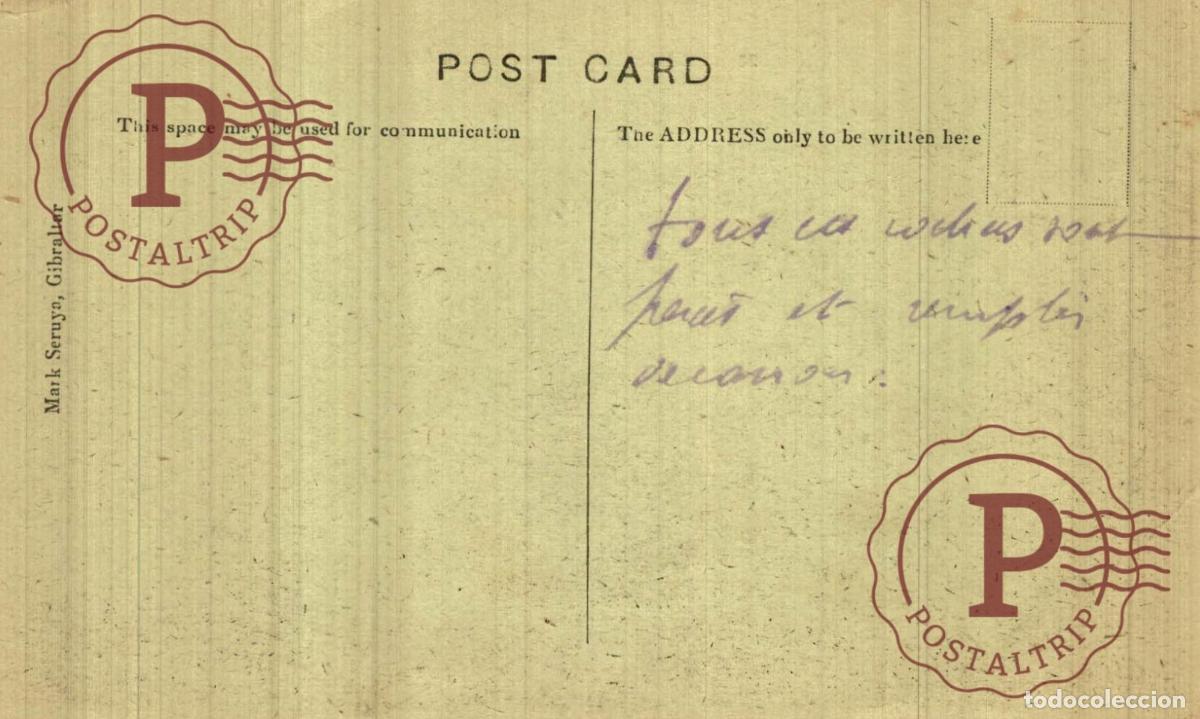 POST CARD
This space may be used for communication
The ADDRESS only to be written here
Mark Seruya, Gibraltar
tous ces rochers sont
percés et remplis
de canons.
P
POSTALTRIP
P
POSTALTRIP
todocoleccion